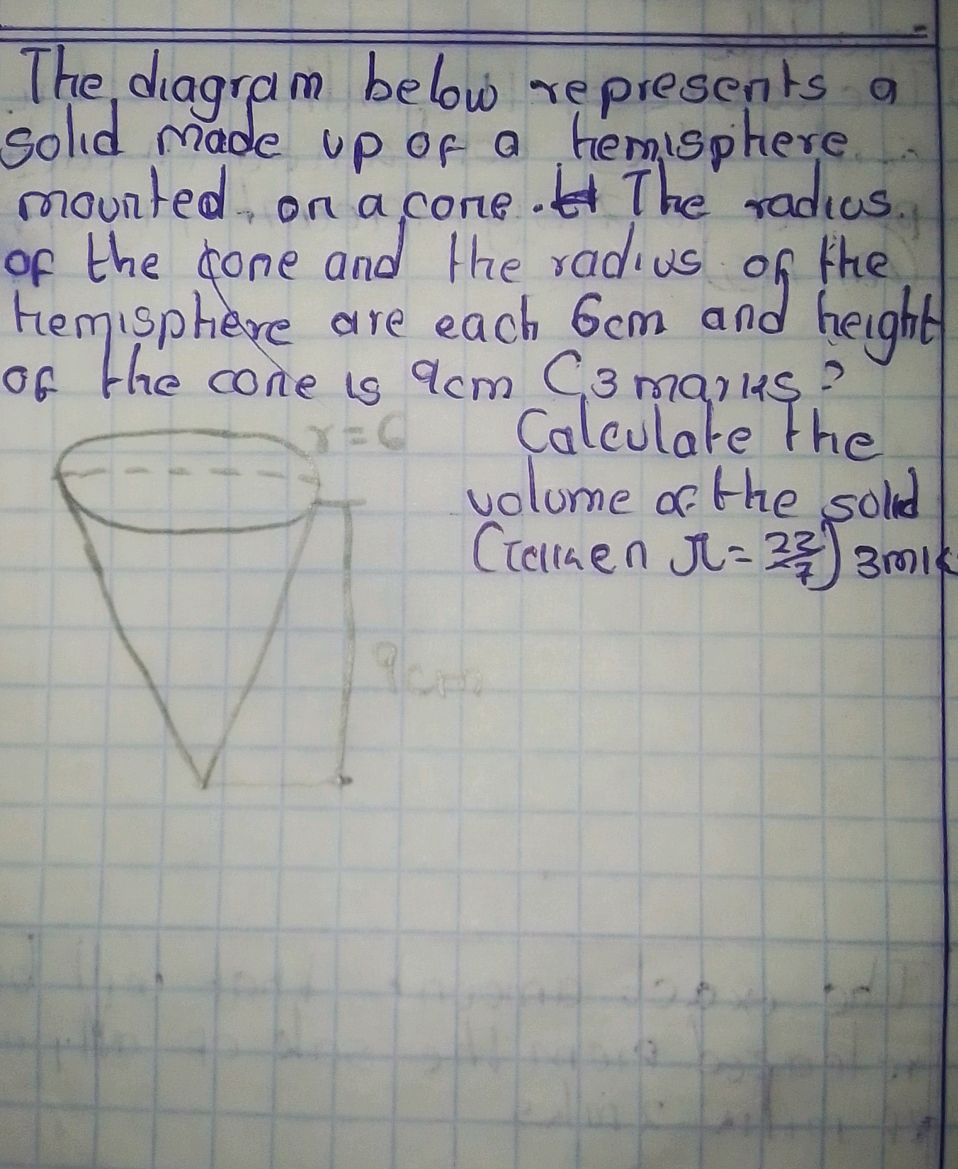 The diagram below represents a
solid made up of a hemisphere
mounted on a cone. The radius
of the cone and the radius of the
hemisphere are each 6cm and height
of the cone is 9cm (3 marks?
r=6
Calculate the
volume of the solid
(Taken π = 22/7) 3mk
9cm